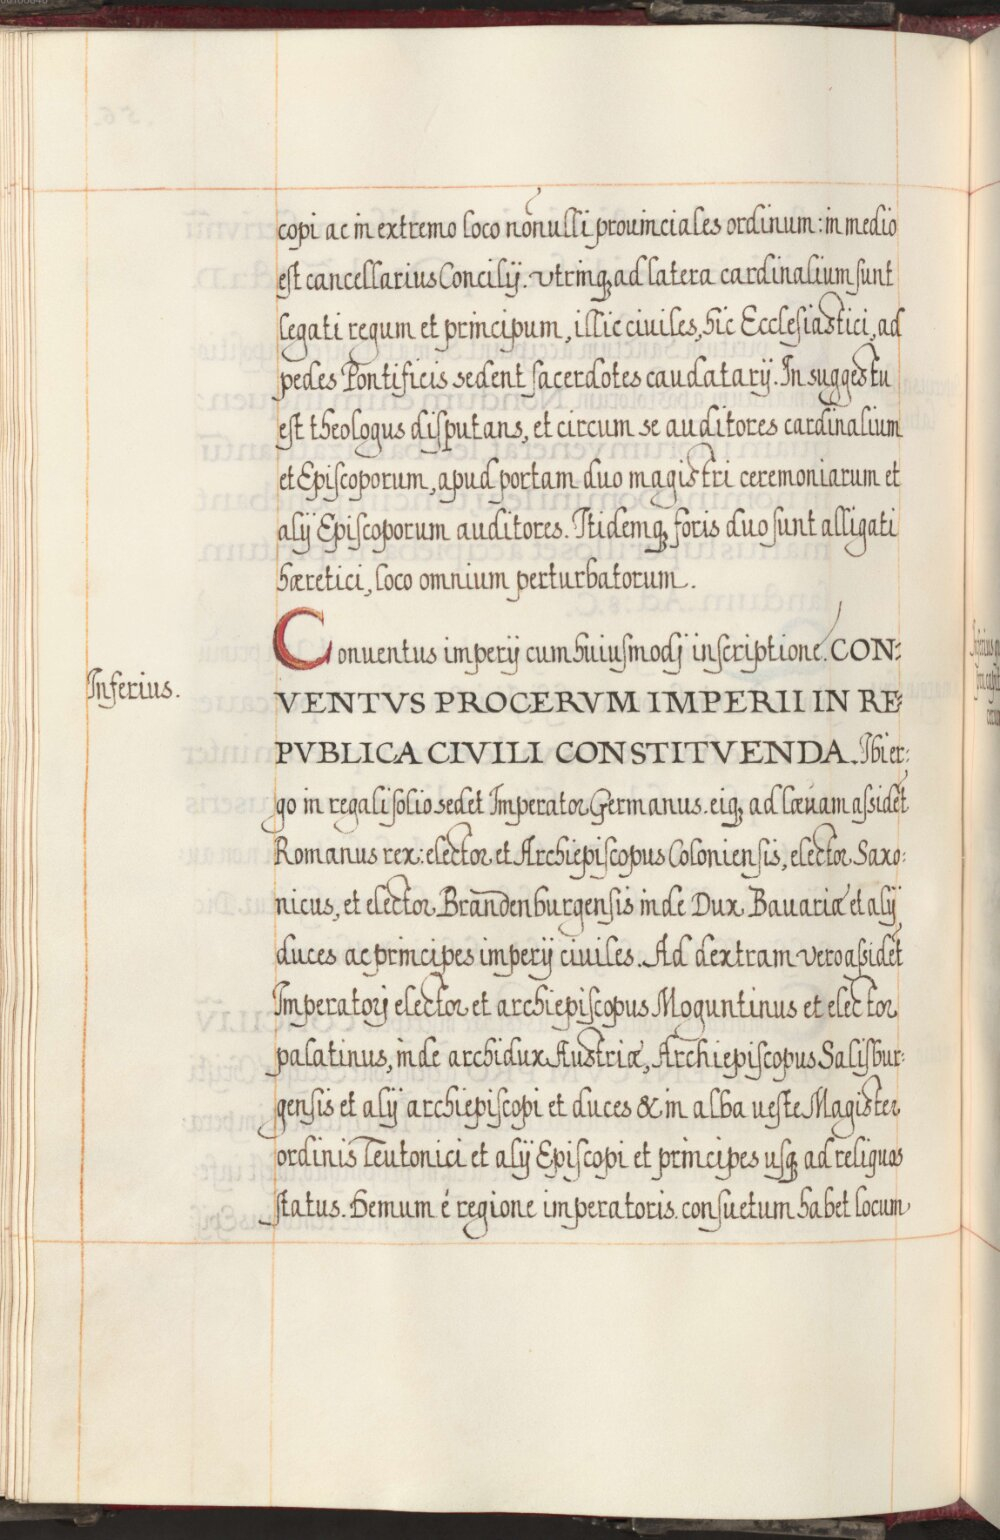 copi ac in extremo loco nōnulli prouinciales ordinum: in medio
est cancellarius Concilij. vtrinq; ad latera cardinalium sunt
legati regum et principum, illic ciuiles, hic Ecclesiastici, ad
pedes Pontificis sedent sacerdotes caudatarij. In suggestu
est theologus disputans, et circum se auditores cardinalium
et Episcoporum, apud portam duo magistri ceremoniarum et
alij Episcoporum auditores. Itidemq; foris duo sunt alligati
hæretici, loco omnium perturbatorum.
Conuentus imperij cum huiusmodj inscriptione. CON-
Inferius.
VENTVS PROCERVM IMPERII IN RE-
PVBLICA CIVILI CONSTITVENDA. Ibi er-
go in regali solio sedet Imperator Germanus. eiq; ad læuam assidēt
Romanus rex: elector et Archiepiscopus Coloniensis, elector Saxo-
nicus, et elector Brandenburgensis inde Dux Bauariæ et alij
duces ac principes imperij ciuiles. Ad dextram vero assidēt
Imperatorj elector et archiepiscopus Moguntinus et elector
palatinus, inde archidux Austriæ, Archiepiscopus Salisbur-
gensis et alij archiepiscopi et duces & in alba ueste Magister
ordinis Teutonici et alij Episcopi et principes usq; ad reliquos
status. Demum é regione imperatoris. consuetum habet locum